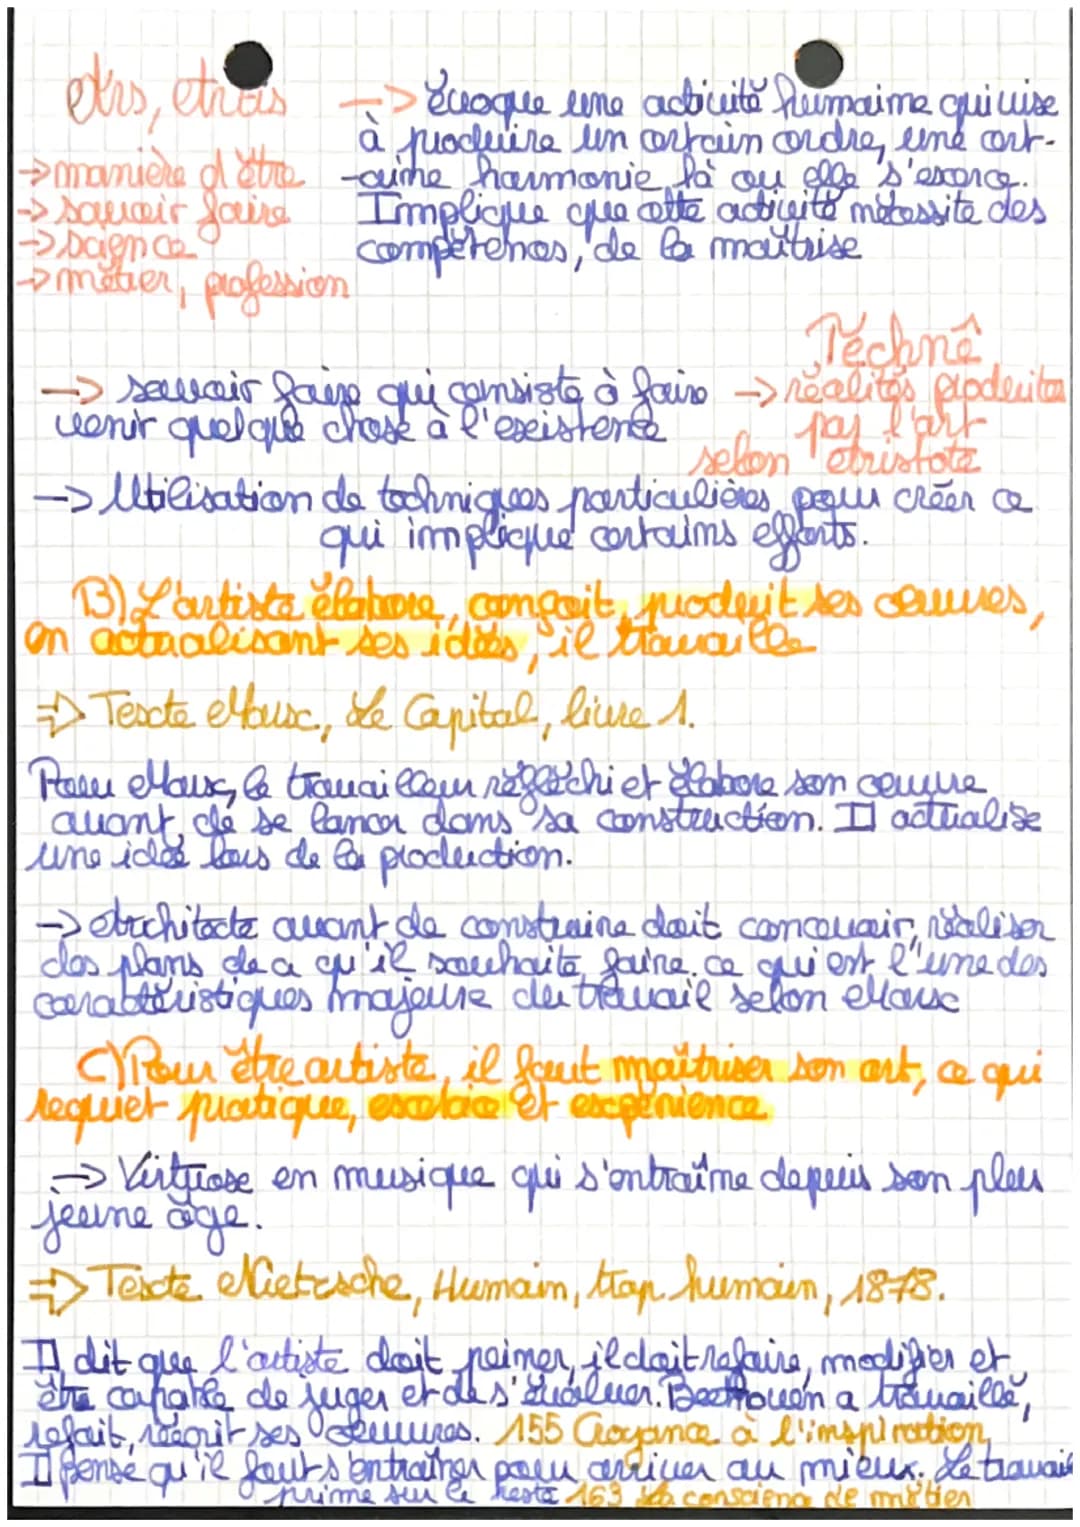 Ars, Artis
→ manière d'être
→ savoir faire
→ science
→ métier, profession
→ évoque une activité humaine qui vise
à produire un certain ordre, une cert-
-aine harmonie là ou elle s'exerce.
Implique que cette activité nécessite des
compétences, de la maîtrise
Technê
→ réalités produites
par l'art
selon Aristote
→ savoir faire qui consiste à faire
venir quelque chose à l'existence
→ Utilisation de techniques particulières pour créer ce
qui implique certains efforts.
B) L'artiste élabore, conçoit, produit ses œuvres,
en actualisant ses idées, il travaille
⇒ Texte Marx, Le Capital, livre 1.
Pour Marx, le travailleur réfléchi et élabore son œuvre
avant de se lancer dans sa construction. Il actualise
une idée lors de la production.
→ Architecte avant de construire doit concevoir, réaliser
des plans de ce qu'il souhaite faire. ce qui est l'une des
caractéristiques majeure du travail selon Marx
C) Pour être artiste, il faut maîtriser son art, ce qui
requiet pratique, exercice et expérience
→ Virtuose en musique qui s'entraîne depuis son plus
jeune âge.
⇒ Texte Nietzsche, Humain, trop humain, 1878.
Il dit que l'artiste doit peiner, il doit refaire, modifier et
être capable de juger et de s'évaluer. Beethoven a travaillé,
refait, réécrit ses œuvres. 155 Croyance à l'inspiration
Il pense qu'il faut s'entraîner pour arriver au mieux. Le travail
prime sur le reste 163 La conscience de métier